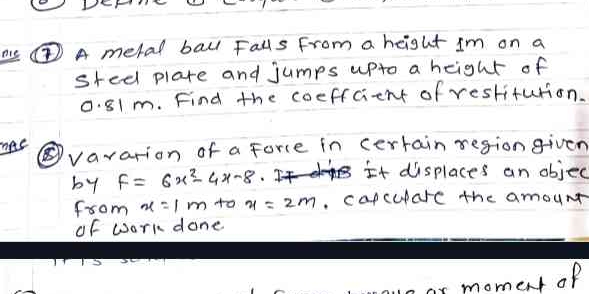 ⑦ A metal ball Falls From a height 1m on a
steel plate and jumps upto a height of
0.81 m. Find the coefficient of restitution.
⑧ Varation of a Force in certain region given
by F= 6x²-4x-8. It displaces an objec
from x=1m to x=2m. calculate the amount
of work done
moment of